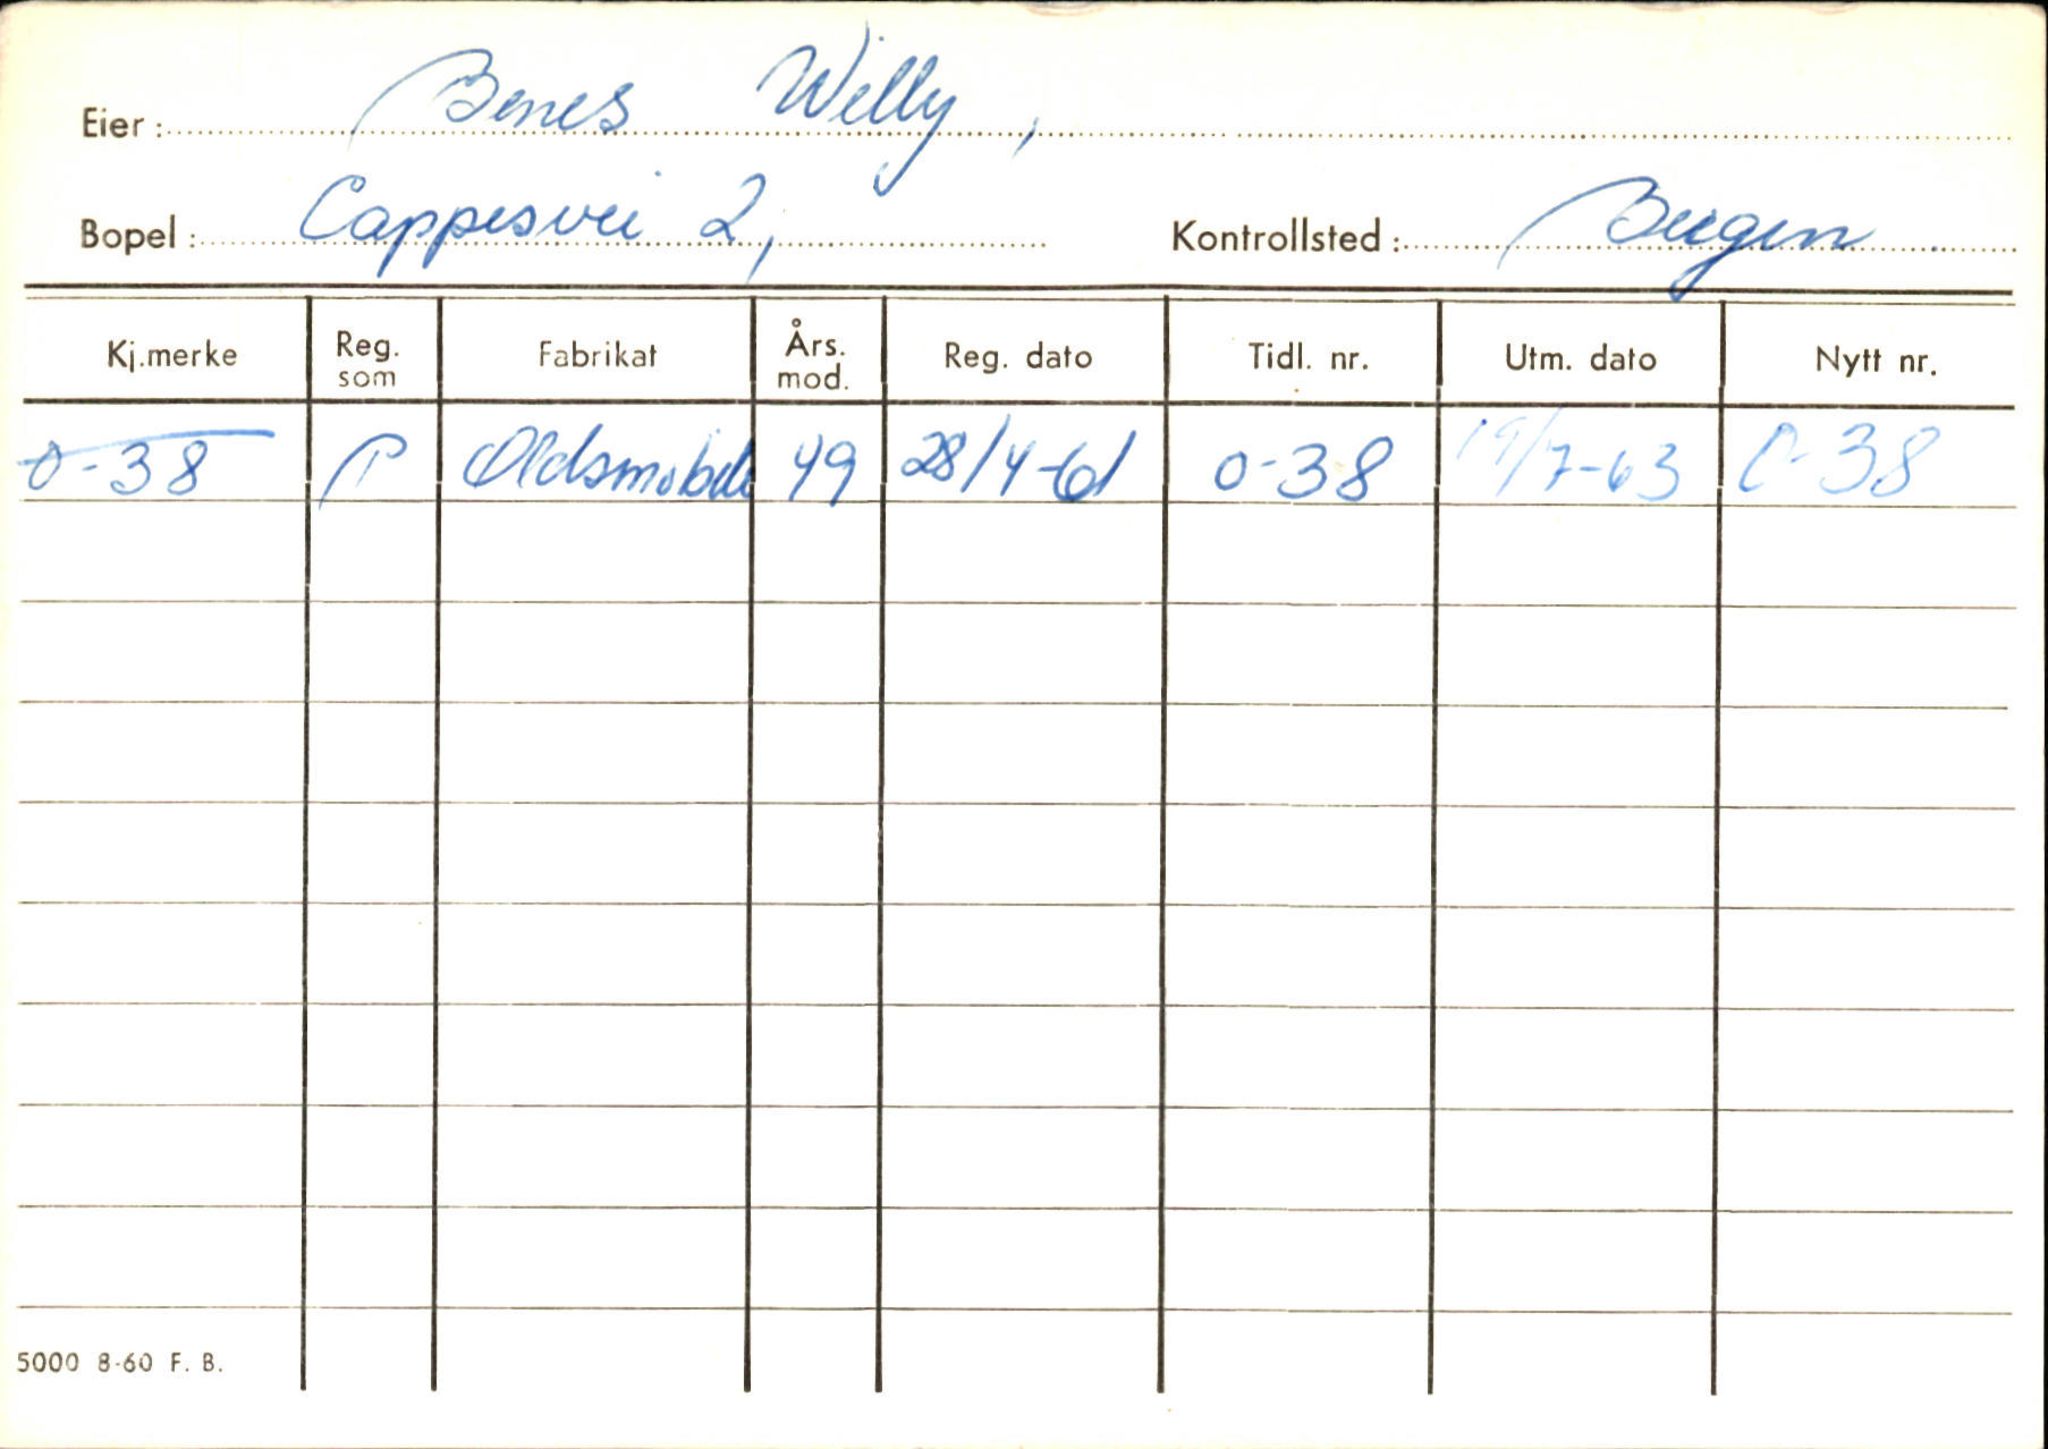 Eier: Benes Willy,
Bopel: Cappesvei 2, Kontrollsted: Bergen
Kj.merke Reg. som Fabrikat Års. mod. Reg. dato Tidl. nr. Utm. dato Nytt nr.
O-38 P Oldsmobile 49 28/4-61 O-38 19/7-63 O-38
5000 8-60 F. B.